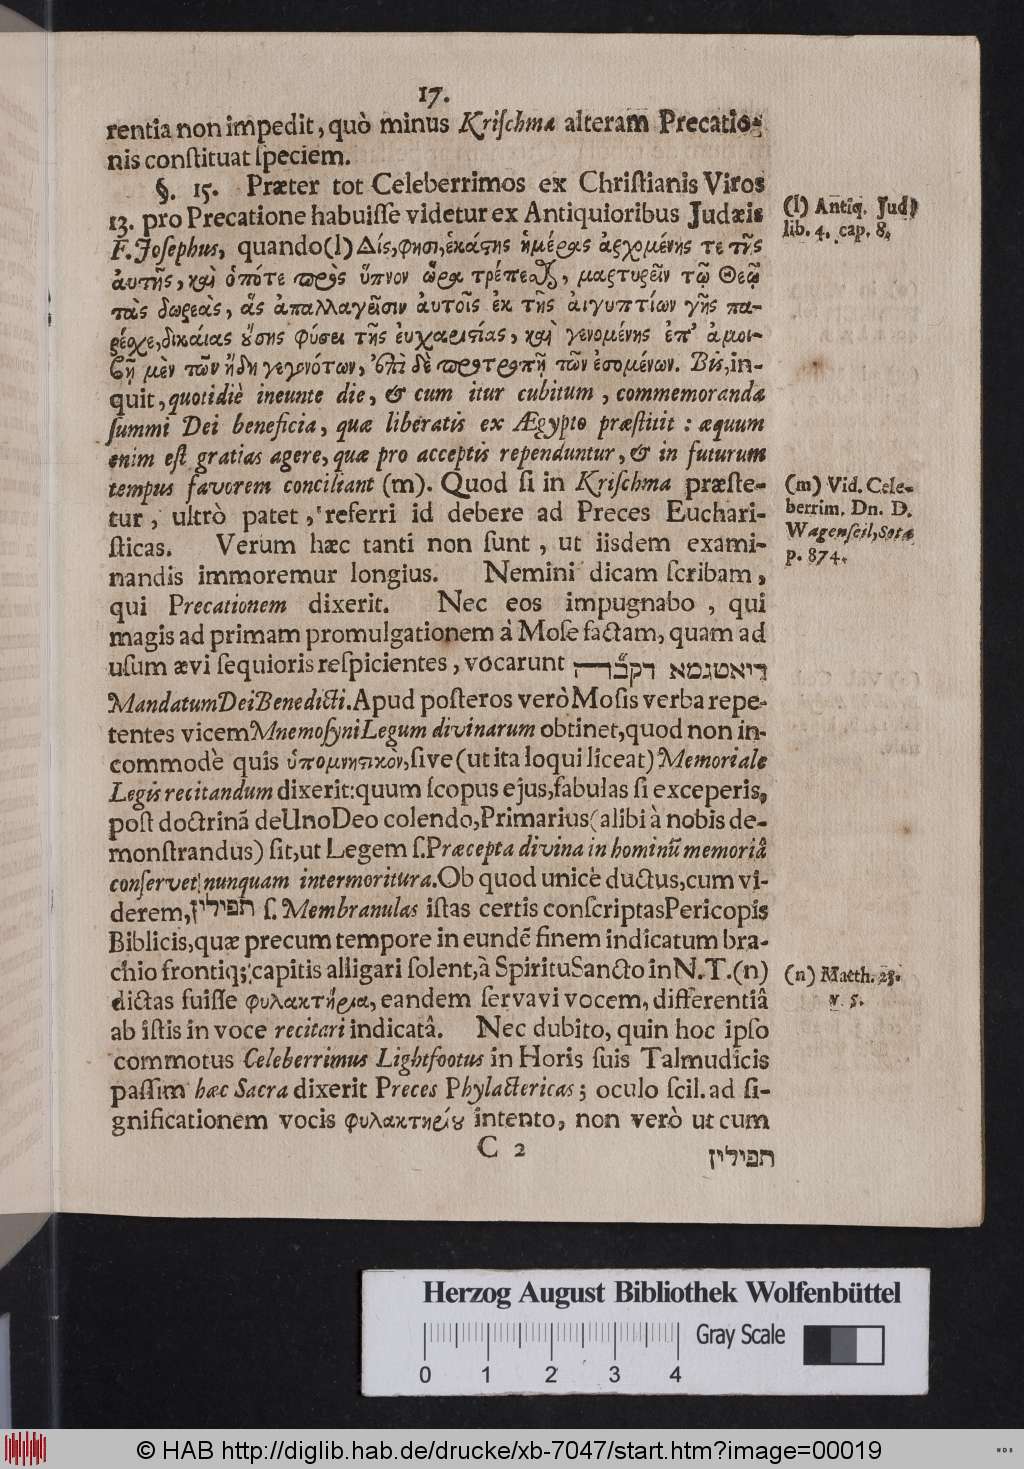 17.
rentia non impedit, quò minus Kriſchma alteram Precatio-
nis conſtituat ſpeciem.
§. 15. Præter tot Celeberrimos ex Chriſtianis Viros
13. pro Precatione habuiſſe videtur ex Antiquioribus Judæis
F. Joſephus, quando (l) Δίς, φησι, ἑκάϛης ἡμέρας ἀρχομένης τε τῆς
ἀυτῆς, καὶ ὁπότε πρὸς ὕπνον ὥρα τρέπεϑ, μαρτυρεῖν τῷ Θεῷ
τὰς δωρεὰς, ἃς ἀπαλλαγεῖσιν ἀυτοῖς ἐκ τῆς ἀιγυπτίων γῆς πα-
ρέσχε, δικαίας ȣ̓́σης φύσει τῆς ἐυχαριϛίας, καὶ γενομένης ἐπ' ἀμοι-
βῇ μὲν τῶν ἤδη γεγονότων, ἐπὶ δὲ προτροπῇ τῶν ἐσομένων. Bis, in-
quit, quotidiè ineunte die, & cum itur cubitum, commemoranda
ſummi Dei beneficia, quæ liberatis ex Ægypto præſtitit: æquum
enim eſt gratias agere, quæ pro acceptis rependuntur, & in futurum
tempus favorem conciliant (m). Quod ſi in Kriſchma præſte-
tur, ultrò patet, referri id debere ad Preces Euchari-
ſticas. Verum hæc tanti non ſunt, ut iisdem exami-
nandis immoremur longius. Nemini dicam ſcribam,
qui Precationem dixerit. Nec eos impugnabo, qui
magis ad primam promulgationem à Moſe factam, quam ad
uſum ævi ſequioris reſpicientes, vocarunt דיאטגמא דקב״ה
Mandatum Dei Benedicti. Apud poſteros verò Moſis verba repe-
tentes vicem Mnemoſyni Legum divinarum obtinet, quod non in-
commodè quis ὑπομνηϛικὸν, ſive (ut ita loqui liceat) Memoriale
Legis recitandum dixerit: quum ſcopus ejus, fabulas ſi exceperis,
poſt doctrinã de Uno Deo colendo, Primarius (alibi à nobis de-
monſtrandus) ſit, ut Legem ſ. Præcepta divina in hominũ memoriâ
conſervet nunquam intermoritura. Ob quod unicè ductus, cum vi-
derem, תפילין ſ. Membranulas iſtas certis conſcriptas Pericopis
Biblicis, quæ precum tempore in eundẽ finem indicatum bra-
chio frontiq; capitis alligari ſolent, à Spiritu Sancto in N. T. (n)
dictas fuiſſe φυλακτήρια, eandem ſervavi vocem, differentiâ
ab iſtis in voce recitari indicatâ. Nec dubito, quin hoc ipſo
commotus Celeberrimus Lightfootus in Horis ſuis Talmudicis
paſſim hæc Sacra dixerit Preces Phylactericas; oculo ſcil. ad ſi-
gnificationem vocis φυλακτηρίȣ intento, non verò ut cum
C 2
תפילין
(l) Antiq. Jud.
lib. 4. cap. 8.
(m) Vid. Cele-
berrim. Dn. D.
Wagenſeil, Sotæ
p. 874.
(n) Matth. 23.
v. 5.
Herzog August Bibliothek Wolfenbüttel
Gray Scale
0 1 2 3 4
© HAB http://diglib.hab.de/drucke/xb-7047/start.htm?image=00019